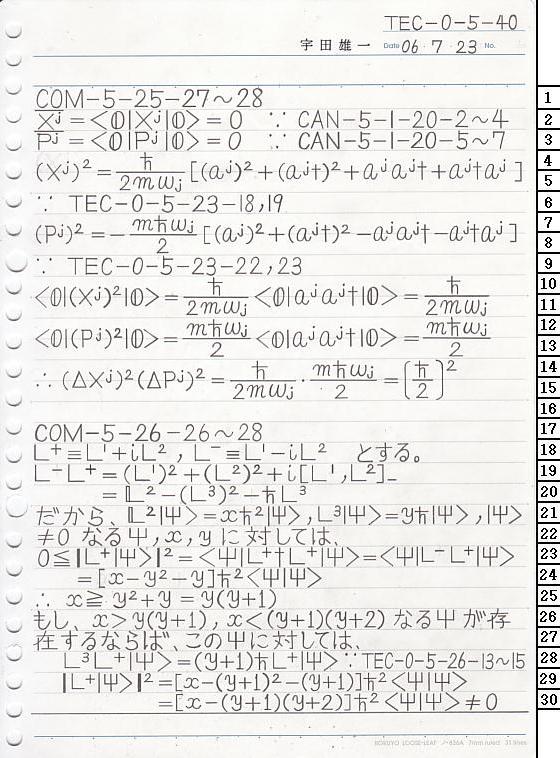 TEC-0-5-40
宇田雄一 Date 06・7・23 No.
COM-5-25-27～28
X̅ʲ̅ = <𝟘|Xʲ|𝟘> = 0 ∵ CAN-5-1-20-2～4
P̅ʲ̅ = <𝟘|Pʲ|𝟘> = 0 ∵ CAN-5-1-20-5～7
(Xʲ)² = ℏ/2mωⱼ [(aʲ)²+(aʲ†)²+aʲaʲ†+aʲ†aʲ]
∵ TEC-0-5-23-18,19
(Pʲ)² = -mℏωⱼ/2 [(aʲ)²+(aʲ†)²-aʲaʲ†-aʲ†aʲ]
∵ TEC-0-5-23-22,23
<𝟘|(Xʲ)²|𝟘> = ℏ/2mωⱼ <𝟘|aʲaʲ†|𝟘> = ℏ/2mωⱼ
<𝟘|(Pʲ)²|𝟘> = mℏωⱼ/2 <𝟘|aʲaʲ†|𝟘> = mℏωⱼ/2
∴ (ΔXʲ)²(ΔPʲ)² = ℏ/2mωⱼ・mℏωⱼ/2 = (ℏ/2)²
COM-5-26-26～28
L⁺≡L¹+iL², L⁻≡L¹-iL² とする。
L⁻L⁺=(L¹)²+(L²)²+i[L¹,L²]₋
=𝕃²-(L³)²-ℏL³
だから、𝕃²|Ψ>=xℏ²|Ψ>, L³|Ψ>=yℏ|Ψ>, |Ψ>
≠0 なる Ψ, x, y に対しては、
0≦|L⁺|Ψ>|²=<Ψ|L⁺†L⁺|Ψ>=<Ψ|L⁻L⁺|Ψ>
=[x-y²-y]ℏ²<Ψ|Ψ>
∴ x≧y²+y=y(y+1)
もし、x>y(y+1), x<(y+1)(y+2) なる Ψ が存
在するならば、この Ψ に対しては、
L³L⁺|Ψ>=(y+1)ℏL⁺|Ψ> ∵TEC-0-5-26-13～15
|L⁺|Ψ>|²=[x-(y+1)²-(y+1)]ℏ²<Ψ|Ψ>
=[x-(y+1)(y+2)]ℏ²<Ψ|Ψ>≠0
KOKUYO LOOSE-LEAF ノ-836A 7mm ruled 31 lines
1
2
3
4
5
6
7
8
9
10
11
12
13
14
15
16
17
18
19
20
21
22
23
24
25
26
27
28
29
30